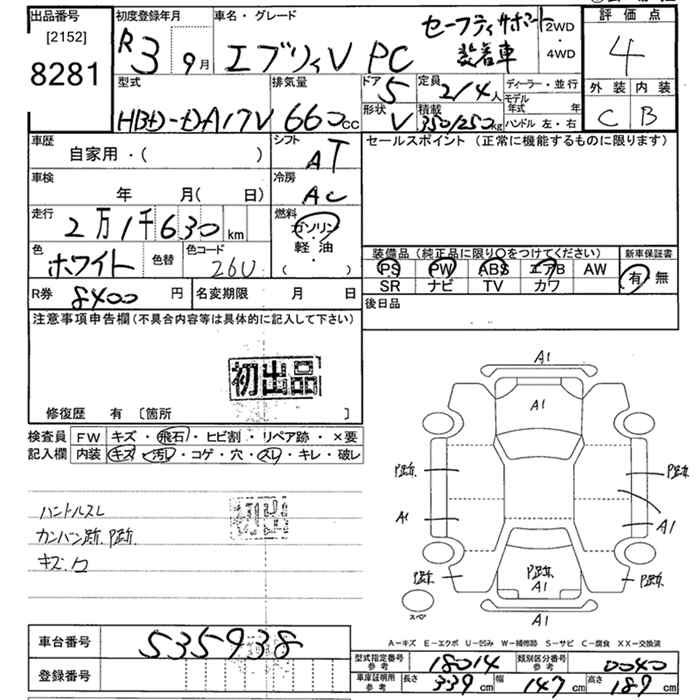 出品番号
[2152]
8281
初度登録年月
R3 9月
車名・グレード
エブリィV PC
セーフティサポート
装着車
2WD
・
4WD
評価点
4
外装 内装
C B
型式
HBD-DA17V
排気量
660cc
ドア
5
定員
2/4人
形状
V
積載
350/250kg
ディーラー・並行
モデル
年式 年
ハンドル 左・右
車歴
自家用・( )
シフト
AT
車検
年 月( 日)
冷房
AC
走行
2万1千630km
燃料
ガソリン
軽油
( ・ )
色
ホワイト
色替
色コード
26U
R券
8400円
名変期限 月 日
セールスポイント (正常に機能するものに限ります)
装備品 (純正品に限り○をつけてください)
PS PW ABS エアB AW
SR ナビ TV カワ
新車保証書
有・無
後日品
注意事項申告欄 (不具合内容等は具体的に記入して下さい)
初出品
修復歴 有 [箇所 ]
検査員
記入欄
FW キズ・飛石・ヒビ割・リペア跡・×要
内装 キズ・汚レ・コゲ・穴・スレ・キレ・破レ
初出
ハンドルスレ
カンバン跡.P跡.
キズ.ク
A1
A1
P跡. P跡.
A1 A1
P跡. P跡. P跡.
A1
スペア
A1
A-キズ E-エクボ U-凹み W-補修跡 S-サビ C-腐食 XX-交換済
車台番号
535938
登録番号
型式指定番号
参考
18014
類別区分番号
参考
0040
車庫証明用
参考
長さ 339cm 幅 147cm 高さ 189cm